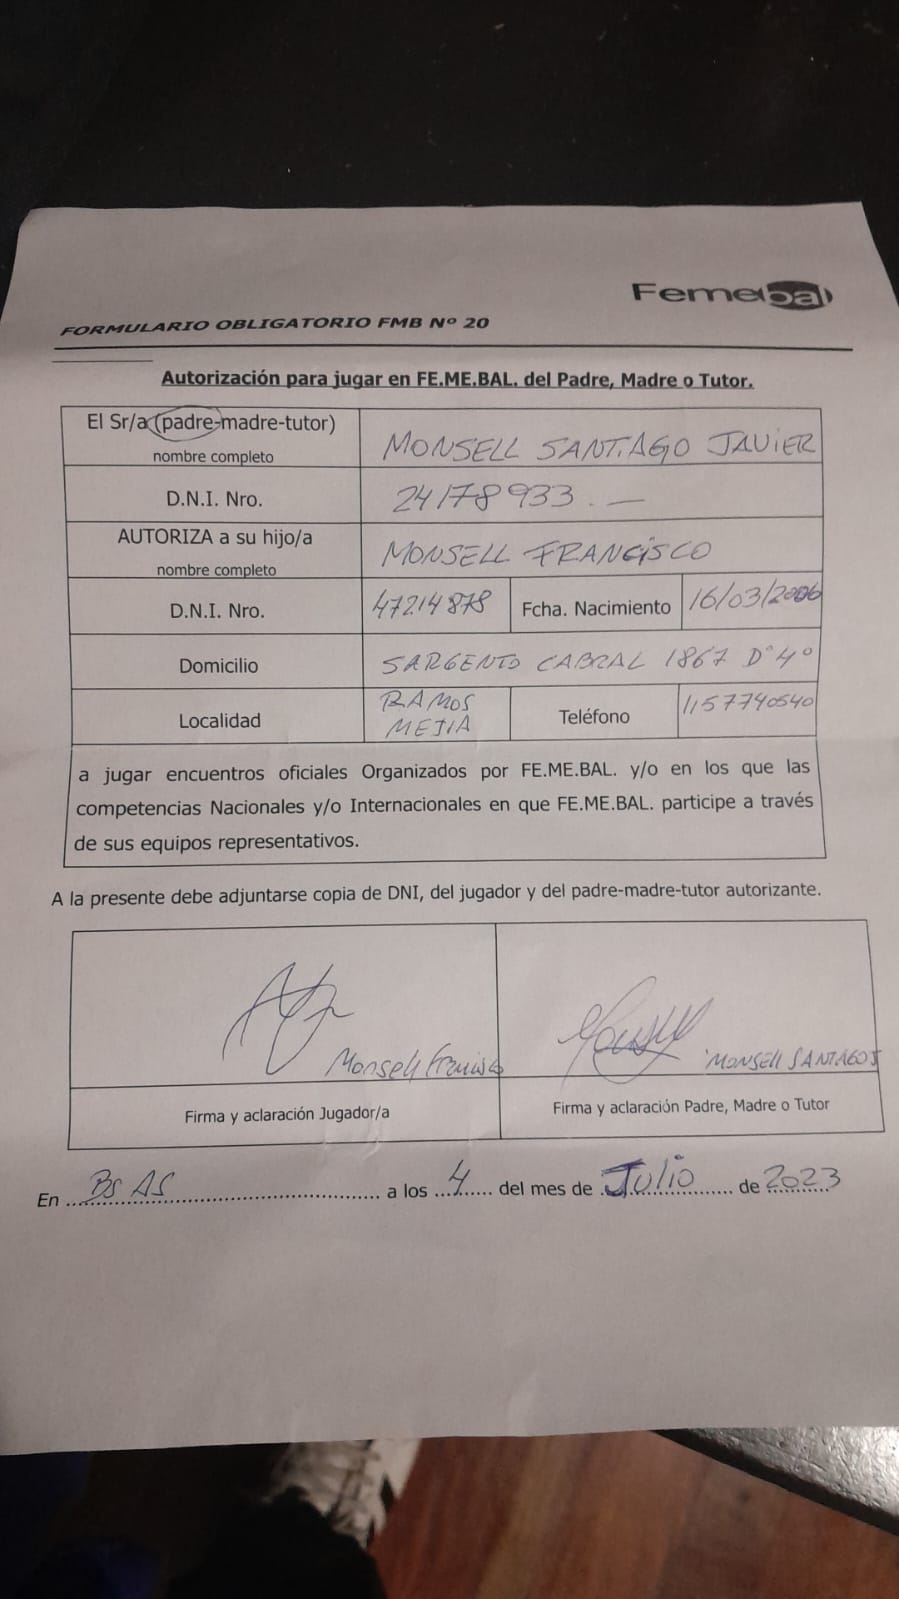 Femebal
FORMULARIO OBLIGATORIO FMB Nº 20
Autorización para jugar en FE.ME.BAL. del Padre, Madre o Tutor.
El Sr/a (padre-madre-tutor)
nombre completo
MONSELL SANTIAGO JAVIER
D.N.I. Nro.
24178933.—
AUTORIZA a su hijo/a
nombre completo
MONSELL FRANCISCO
D.N.I. Nro.
47214878
Fcha. Nacimiento
16/03/2006
Domicilio
SARGENTO CABRAL 1867 D°4°
Localidad
RAMOS
MEJIA
Teléfono
1157740540
a jugar encuentros oficiales Organizados por FE.ME.BAL. y/o en los que las
competencias Nacionales y/o Internacionales en que FE.ME.BAL. participe a través
de sus equipos representativos.
A la presente debe adjuntarse copia de DNI, del jugador y del padre-madre-tutor autorizante.
Monsell Francisco
Firma y aclaración Jugador/a
MONSEll SANTIAGO J
Firma y aclaración Padre, Madre o Tutor
En BS AS a los 4 del mes de Julio de 2023